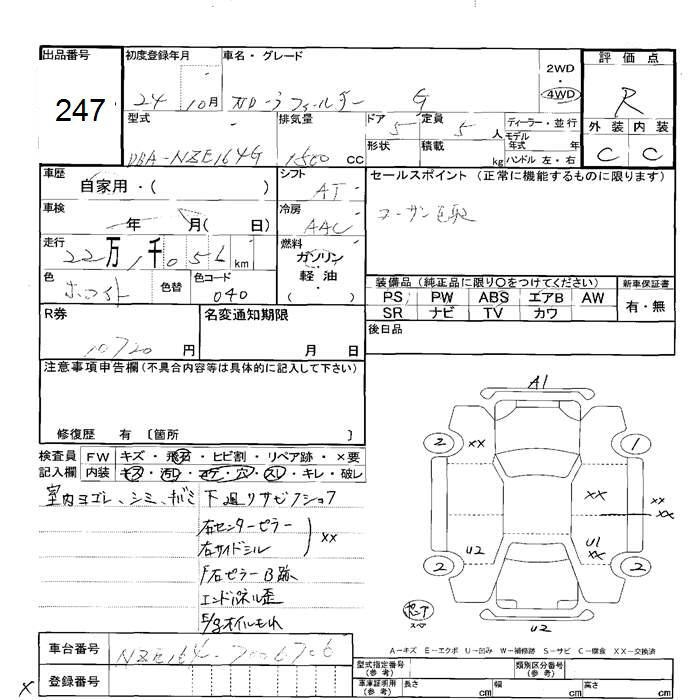 出品番号 初度登録年月 車名・グレード 評価点
247
24 10月 G 2WD
・
4WD R
型式 排気量 ドア 5 定員 5 人 ディーラー・並行 外装 内装
モデル
年式 年
DBA-NZE164G 1500 CC 形状 積載 kg ハンドル 左・右 C C
車歴 シフト AT セールスポイント (正常に機能するものに限ります)
自家用・( )
車検 冷房 AAC
年 月( 日)
走行 燃料
22万 千 056 km ガソリン・
軽油・
( )
色 ホワイト 色替 色コード 040
装備品 (純正品に限り○をつけてください) 新車保証書
PS PW ABS エアB AW 有・無
SR ナビ TV カワ
R券 名変通知期限 後日品
10720 円 月 日
注意事項申告欄(不具合内容等は具体的に記入して下さい)
修復歴 有 〔箇所 〕
検査員 FW キズ・飛石・ヒビ割・リペア跡・×要
記入欄 内装 キズ・汚れ・コゲ・穴・スレ・キレ・破レ
室内ヨゴレ、シミ、キバミ 下廻りサビクショフ
右センターピラー
右サイドシル XX
右ピラーB跡
エンドパネル歪
E/gオイルもれ
A1
2 XX 1
XX XX XX
U2 U1 XX
2 2
U2
A-キズ E-エクボ U-凹み W-補修跡 S-サビ C-腐食 XX-交換済
車台番号 NZE164-7006706
登録番号
型式指定番号 (参考) 類別区分番号 (参考)
車庫証明用 (参考) 長さ cm 幅 cm 高さ cm
X